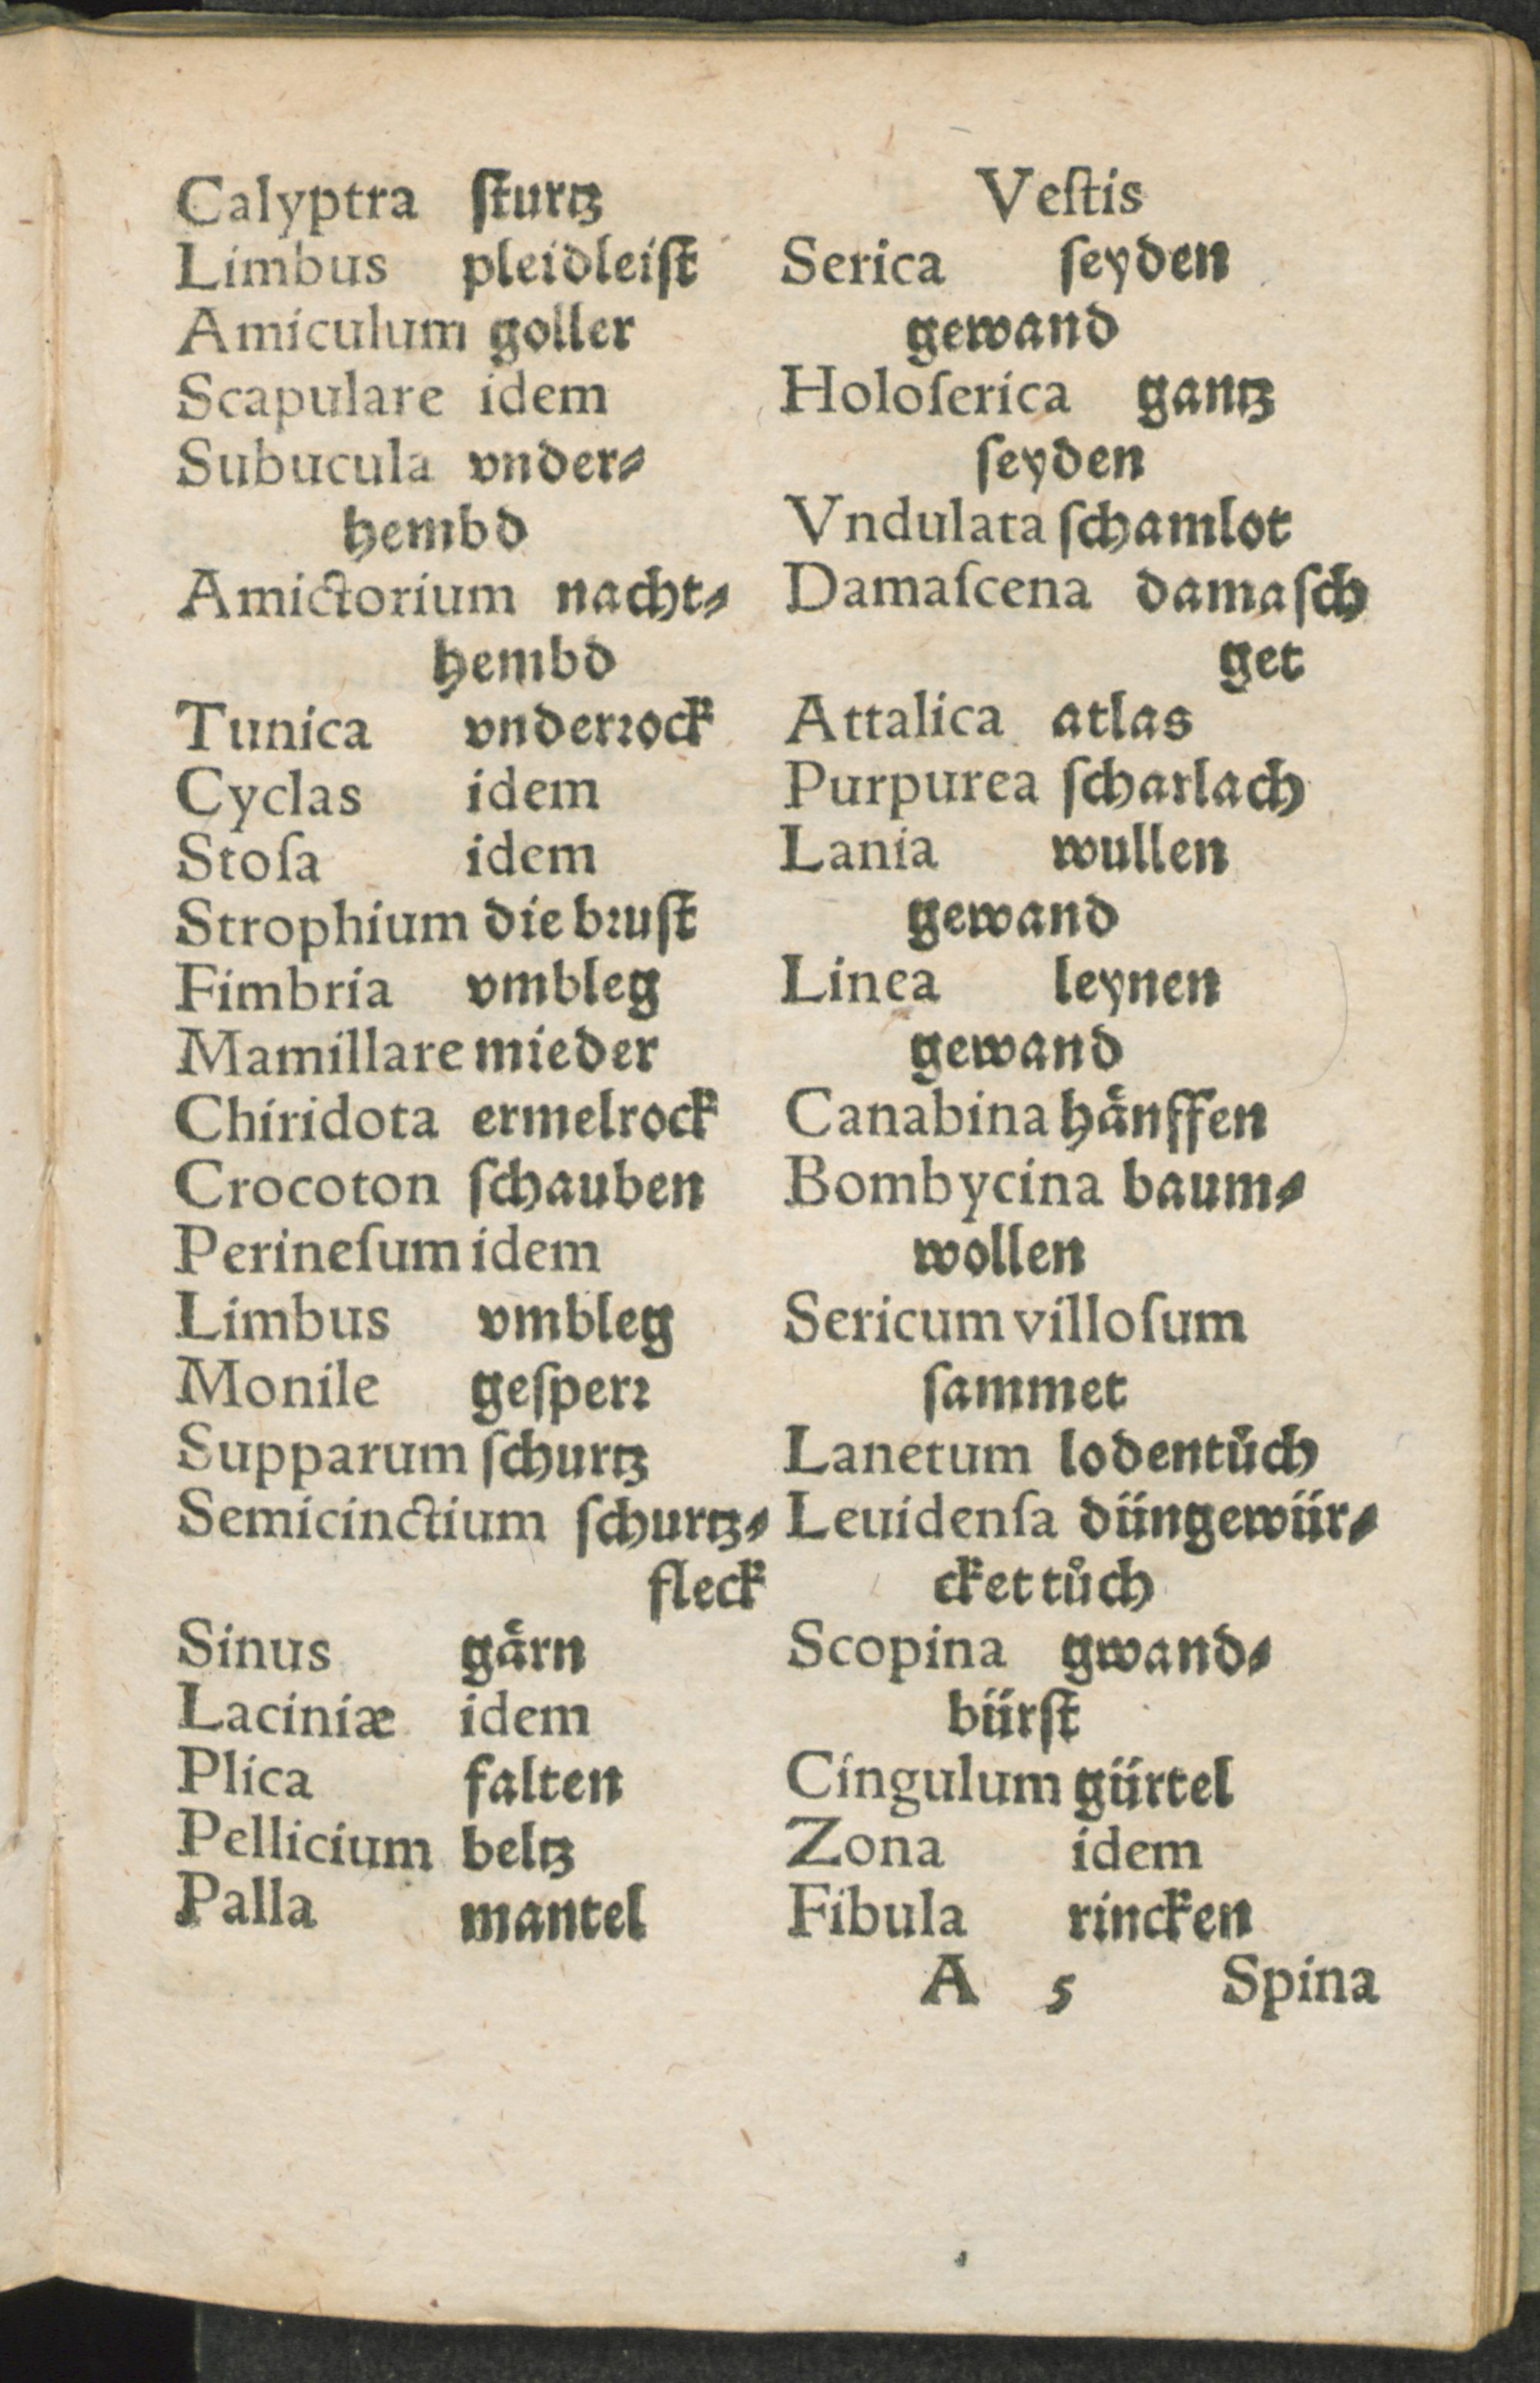 Calyptra ſturtz
Limbus pleidleiſt
Amiculum goller
Scapulare idem
Subucula vnder⸗
hembd
Amictorium nacht⸗
hembd
Tunica vnderꝛock
Cyclas idem
Stoſa idem
Strophium die bꝛuſt
Fimbria vmbleg
Mamillare mieder
Chiridota ermelrock
Crocoton ſchauben
Perineſum idem
Limbus vmbleg
Monile geſperꝛ
Supparum ſchurtz
Semicinctium ſchurtz⸗
fleck
Sinus gaͤrn
Laciniæ idem
Plica falten
Pellicium beltz
Palla mantel
Veſtis
Serica ſeyden
gewand
Holoſerica gantz
ſeyden
Vndulata ſchamlot
Damaſcena damaſch
get
Attalica atlas
Purpurea ſcharlach
Lania wullen
gewand
Linea leynen
gewand
Canabina haͤnffen
Bombycina baum⸗
wollen
Sericum villoſum
ſammet
Lanetum lodentuͦch
Leuidenſa düngewür⸗
cket tuͦch
Scopina gwand⸗
bürſt
Cingulum gürtel
Zona idem
Fibula rincken
A 5 Spina